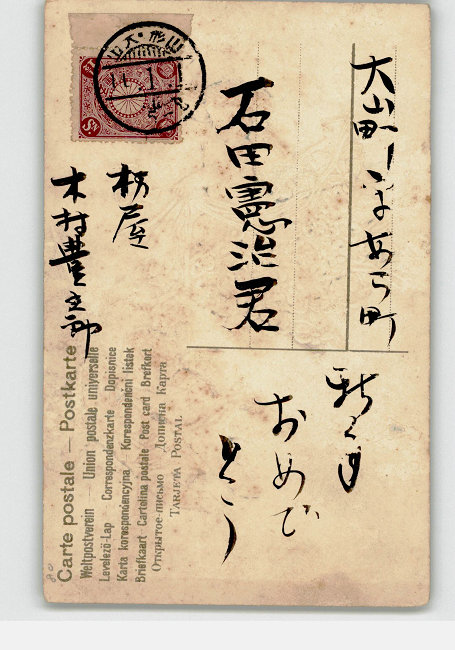 大山町
あら町
石田憲治君
新年
おめで
とう
木村豊太郎
山形・大山
Carte postale — Postkarte
Weltpostverein — Union postale universelle
Levelező-Lap Correspondenzkarte Dopisnice
Karta korespondencyjna Korespondenční listek
Briefkaart Cartolina postale Post card Brefkort
Открытое письмо Дописна Карта
TARJETA POSTAL